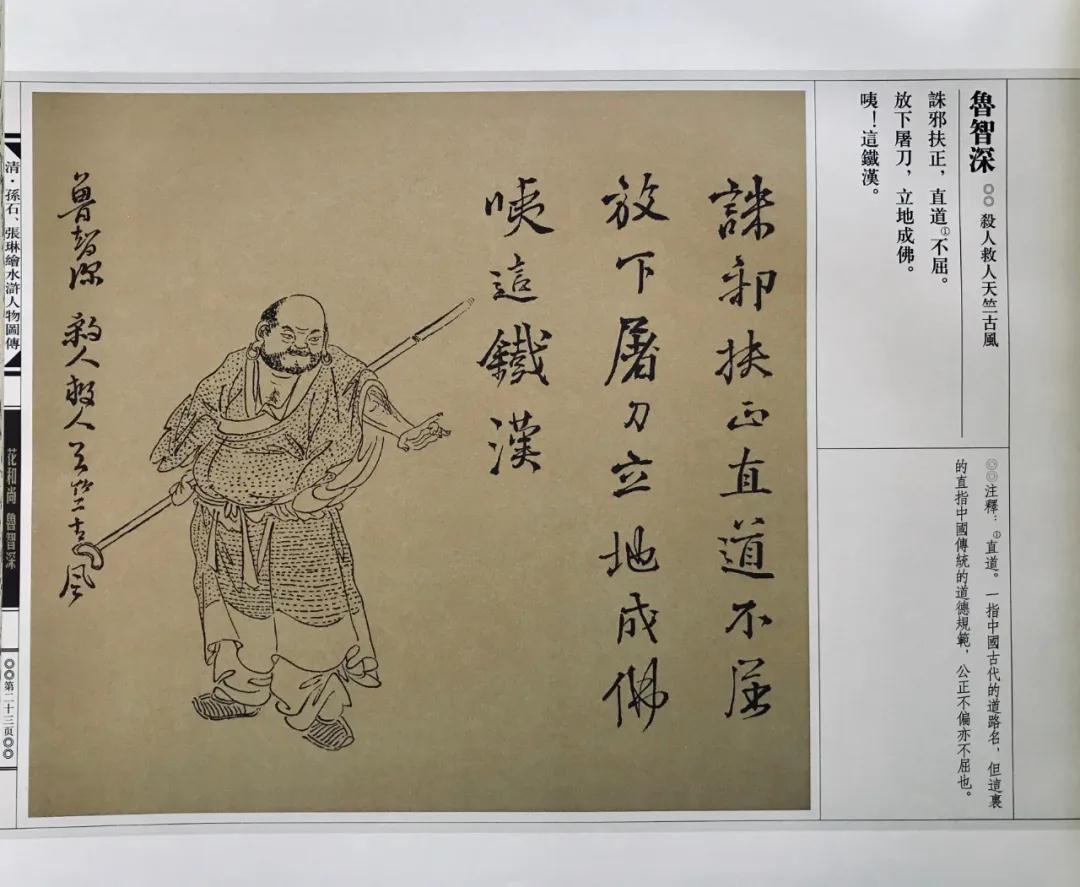 魯智深 ◎◎ 殺人救人天竺古風
誅邪扶正，直道①不屈。
放下屠刀，立地成佛。
咦！這鐵漢。
◎◎注釋：①直道。一指中國古代的道路名，但這裏
的直指中國傳統的道德規範，公正不偏亦不屈也。
誅邪扶正直道不屈
放下屠刀立地成佛
咦這鐵漢
魯智深 殺人救人天竺古風
清·孫石、張琳繪水滸人物圖傳
花和尚 魯智深
◎◎第二十三页◎◎